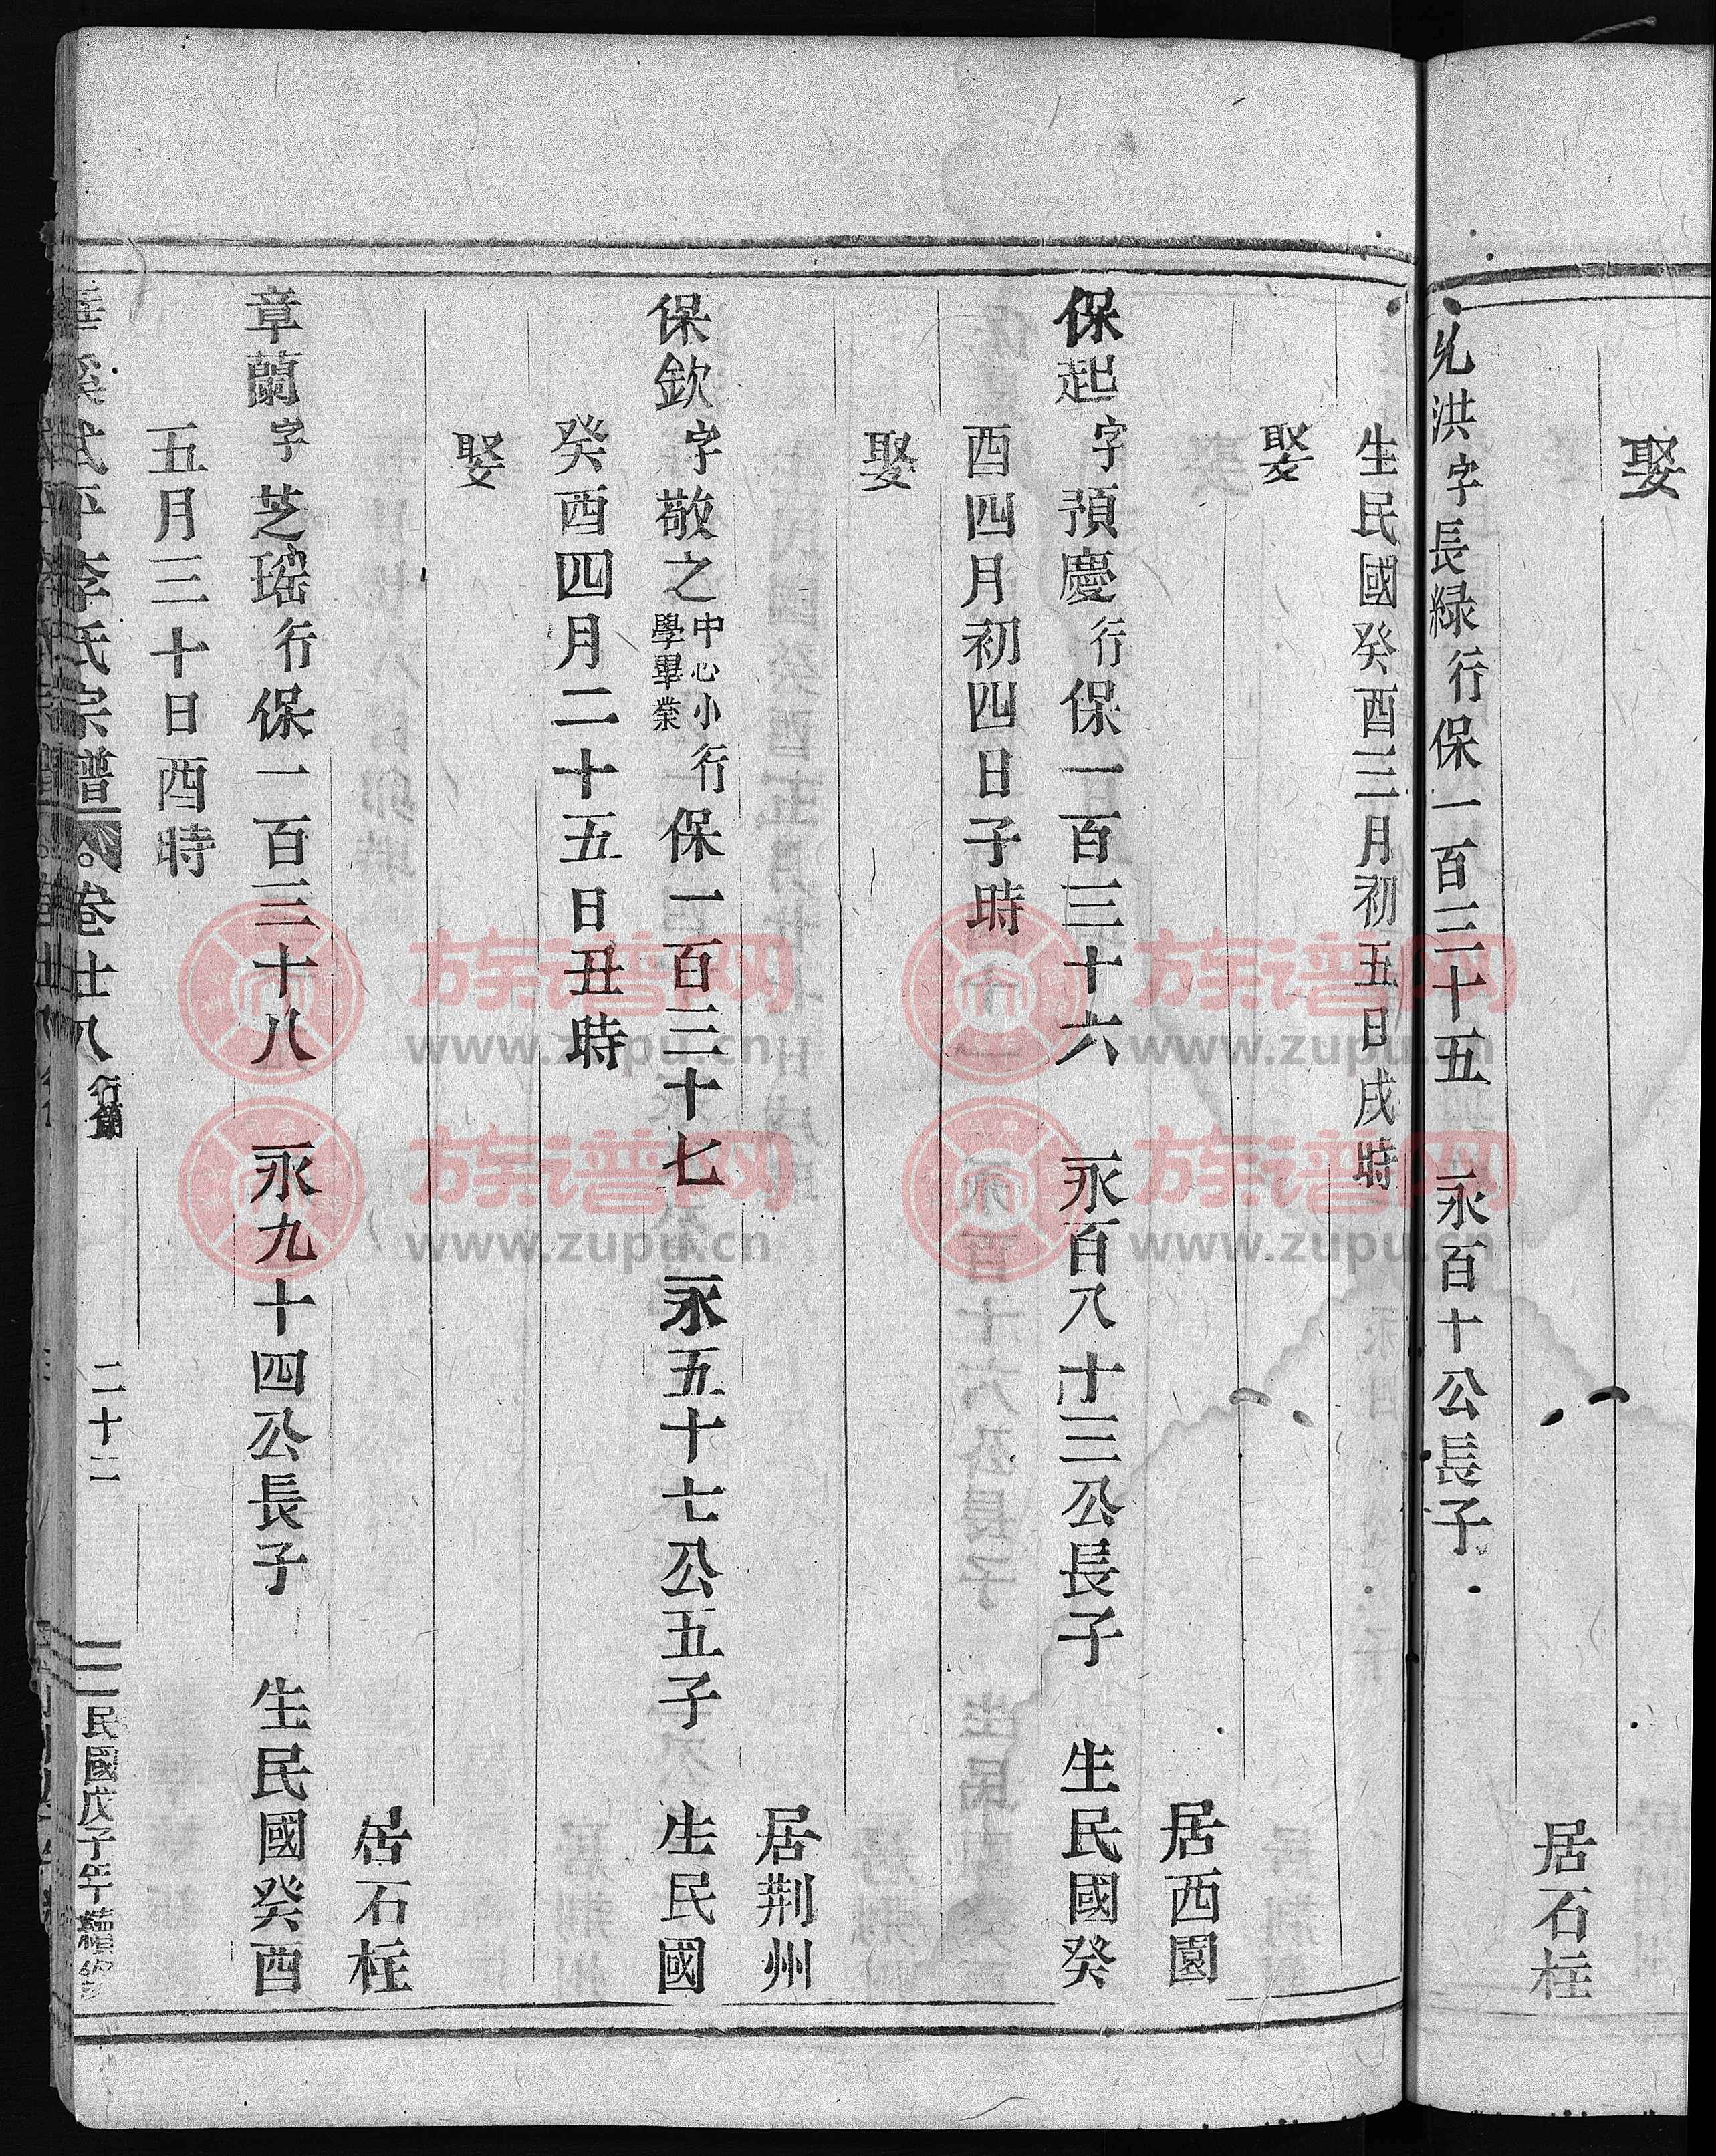 娶
居石柱
光洪字長緑行保一百三十五 永百十公長子
生民國癸酉三月初五日戌時
娶
居西園
保起字預慶行保一百三十六 永百八十三公長子 生民國癸
酉四月初四日子時
娶
居荆州
保欽字敬之中心小學畢業行保一百三十七 永五十七公五子 生民國
癸酉四月二十五日丑時
娶
居石柱
章蘭字芝瑤行保一百三十八 永九十四公長子 生民國癸酉
五月三十日酉時
溪武平李氏宗譜 卷廿八 行第 二十二 民國戊子年續修
族谱网
www.zupu.cn
族谱网
www.zupu.cn
族谱网
www.zupu.cn
族谱网
www.zupu.cn